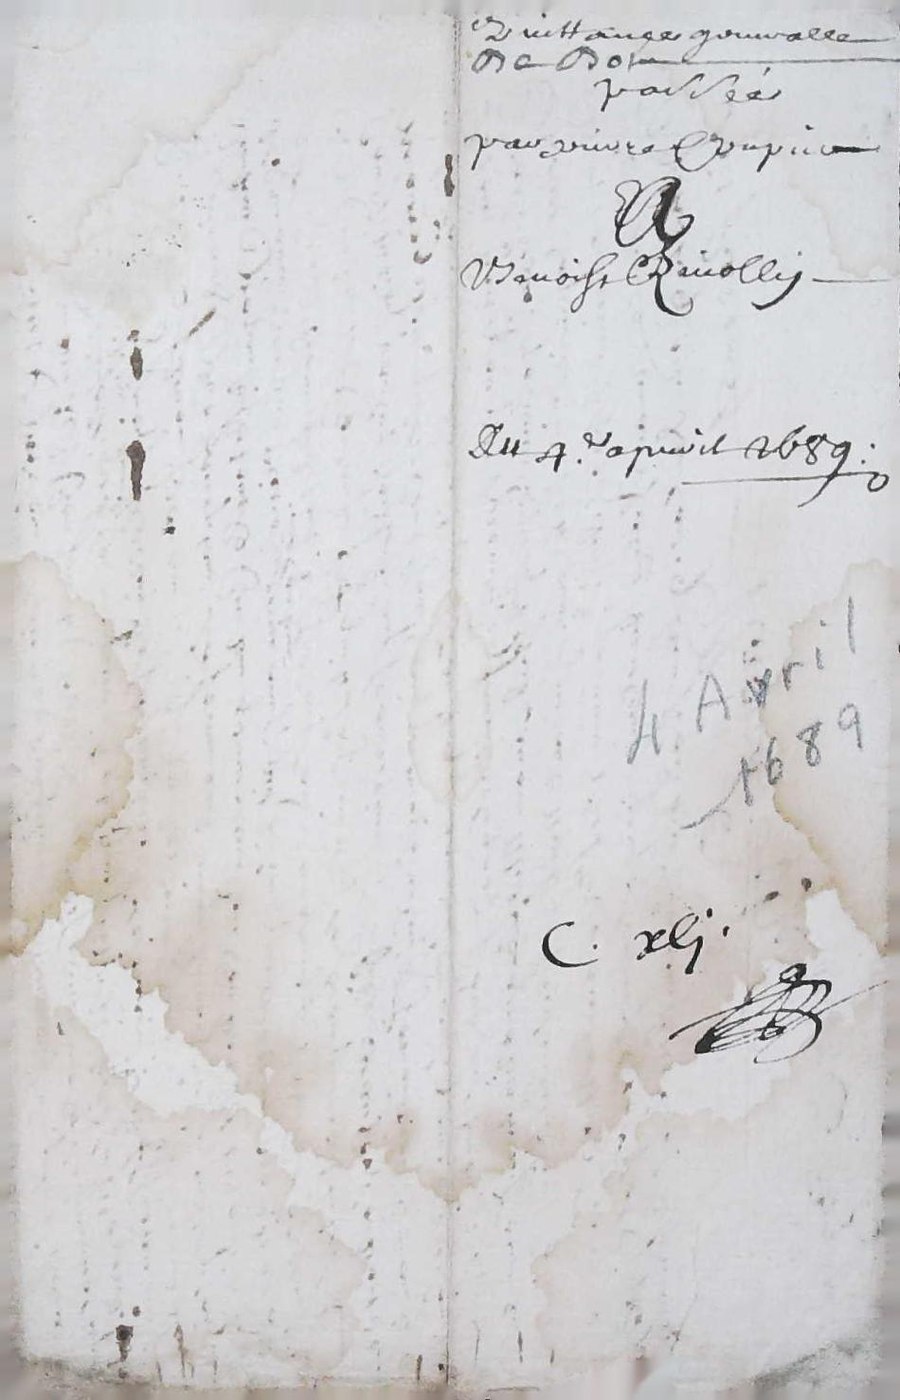 Quittance generalle
De Dot
passée
par pierre
A
Benoist
Du 4.e apvril 1689.
4 Avril
1689
C. xlj.